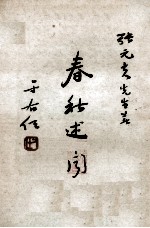 張元夫先生著
春秋述聞
于右任